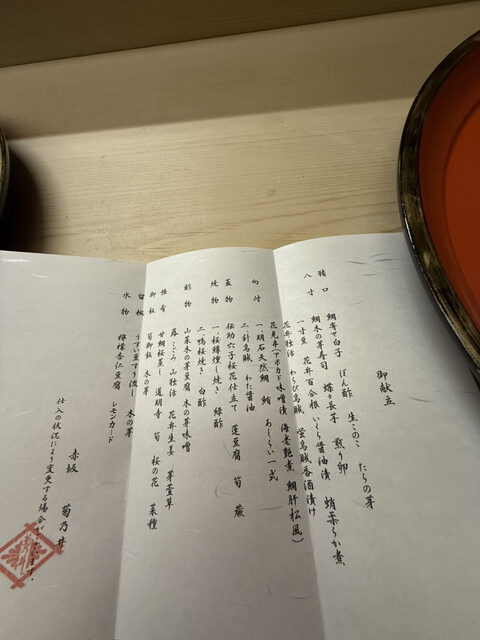 御献立
猪口 鯛寄せ白子 ぽん酢 生このこ たらの芽
八寸 鯛木の芽寿司 蝶々長芋 煎り卵 蛸柔らか煮
一寸豆 花弁百合根 いくら醤油漬
花弁独活 わらび烏賊 蛍烏賊香酒漬け
花見串(アボカド味噌漬 海老艶煮 鯛肝松風)
向付 一、明石天然鯛 鮪 あしらい一式
二、針烏賊 わた醤油
蓋物 伝助穴子桜花仕立て 蓬豆腐 筍 蕨
焼物 一、桜鱒燻し焼き 緑酢
二、鴨桜焼き 白酢
酢物 山菜木の芽豆腐 木の芽味噌
蕗 こごみ 山独活 花弁生姜 芽萱草
強肴 甘鯛桜蒸し 道明寺 筍 桜の花 菜種
御飯 筍御飯 木の芽
留椀 うすい豆すり流し 木の芽
水物 檸檬杏仁豆腐 レモンカード
仕入の状況により変更する場合が
赤坂 菊乃井